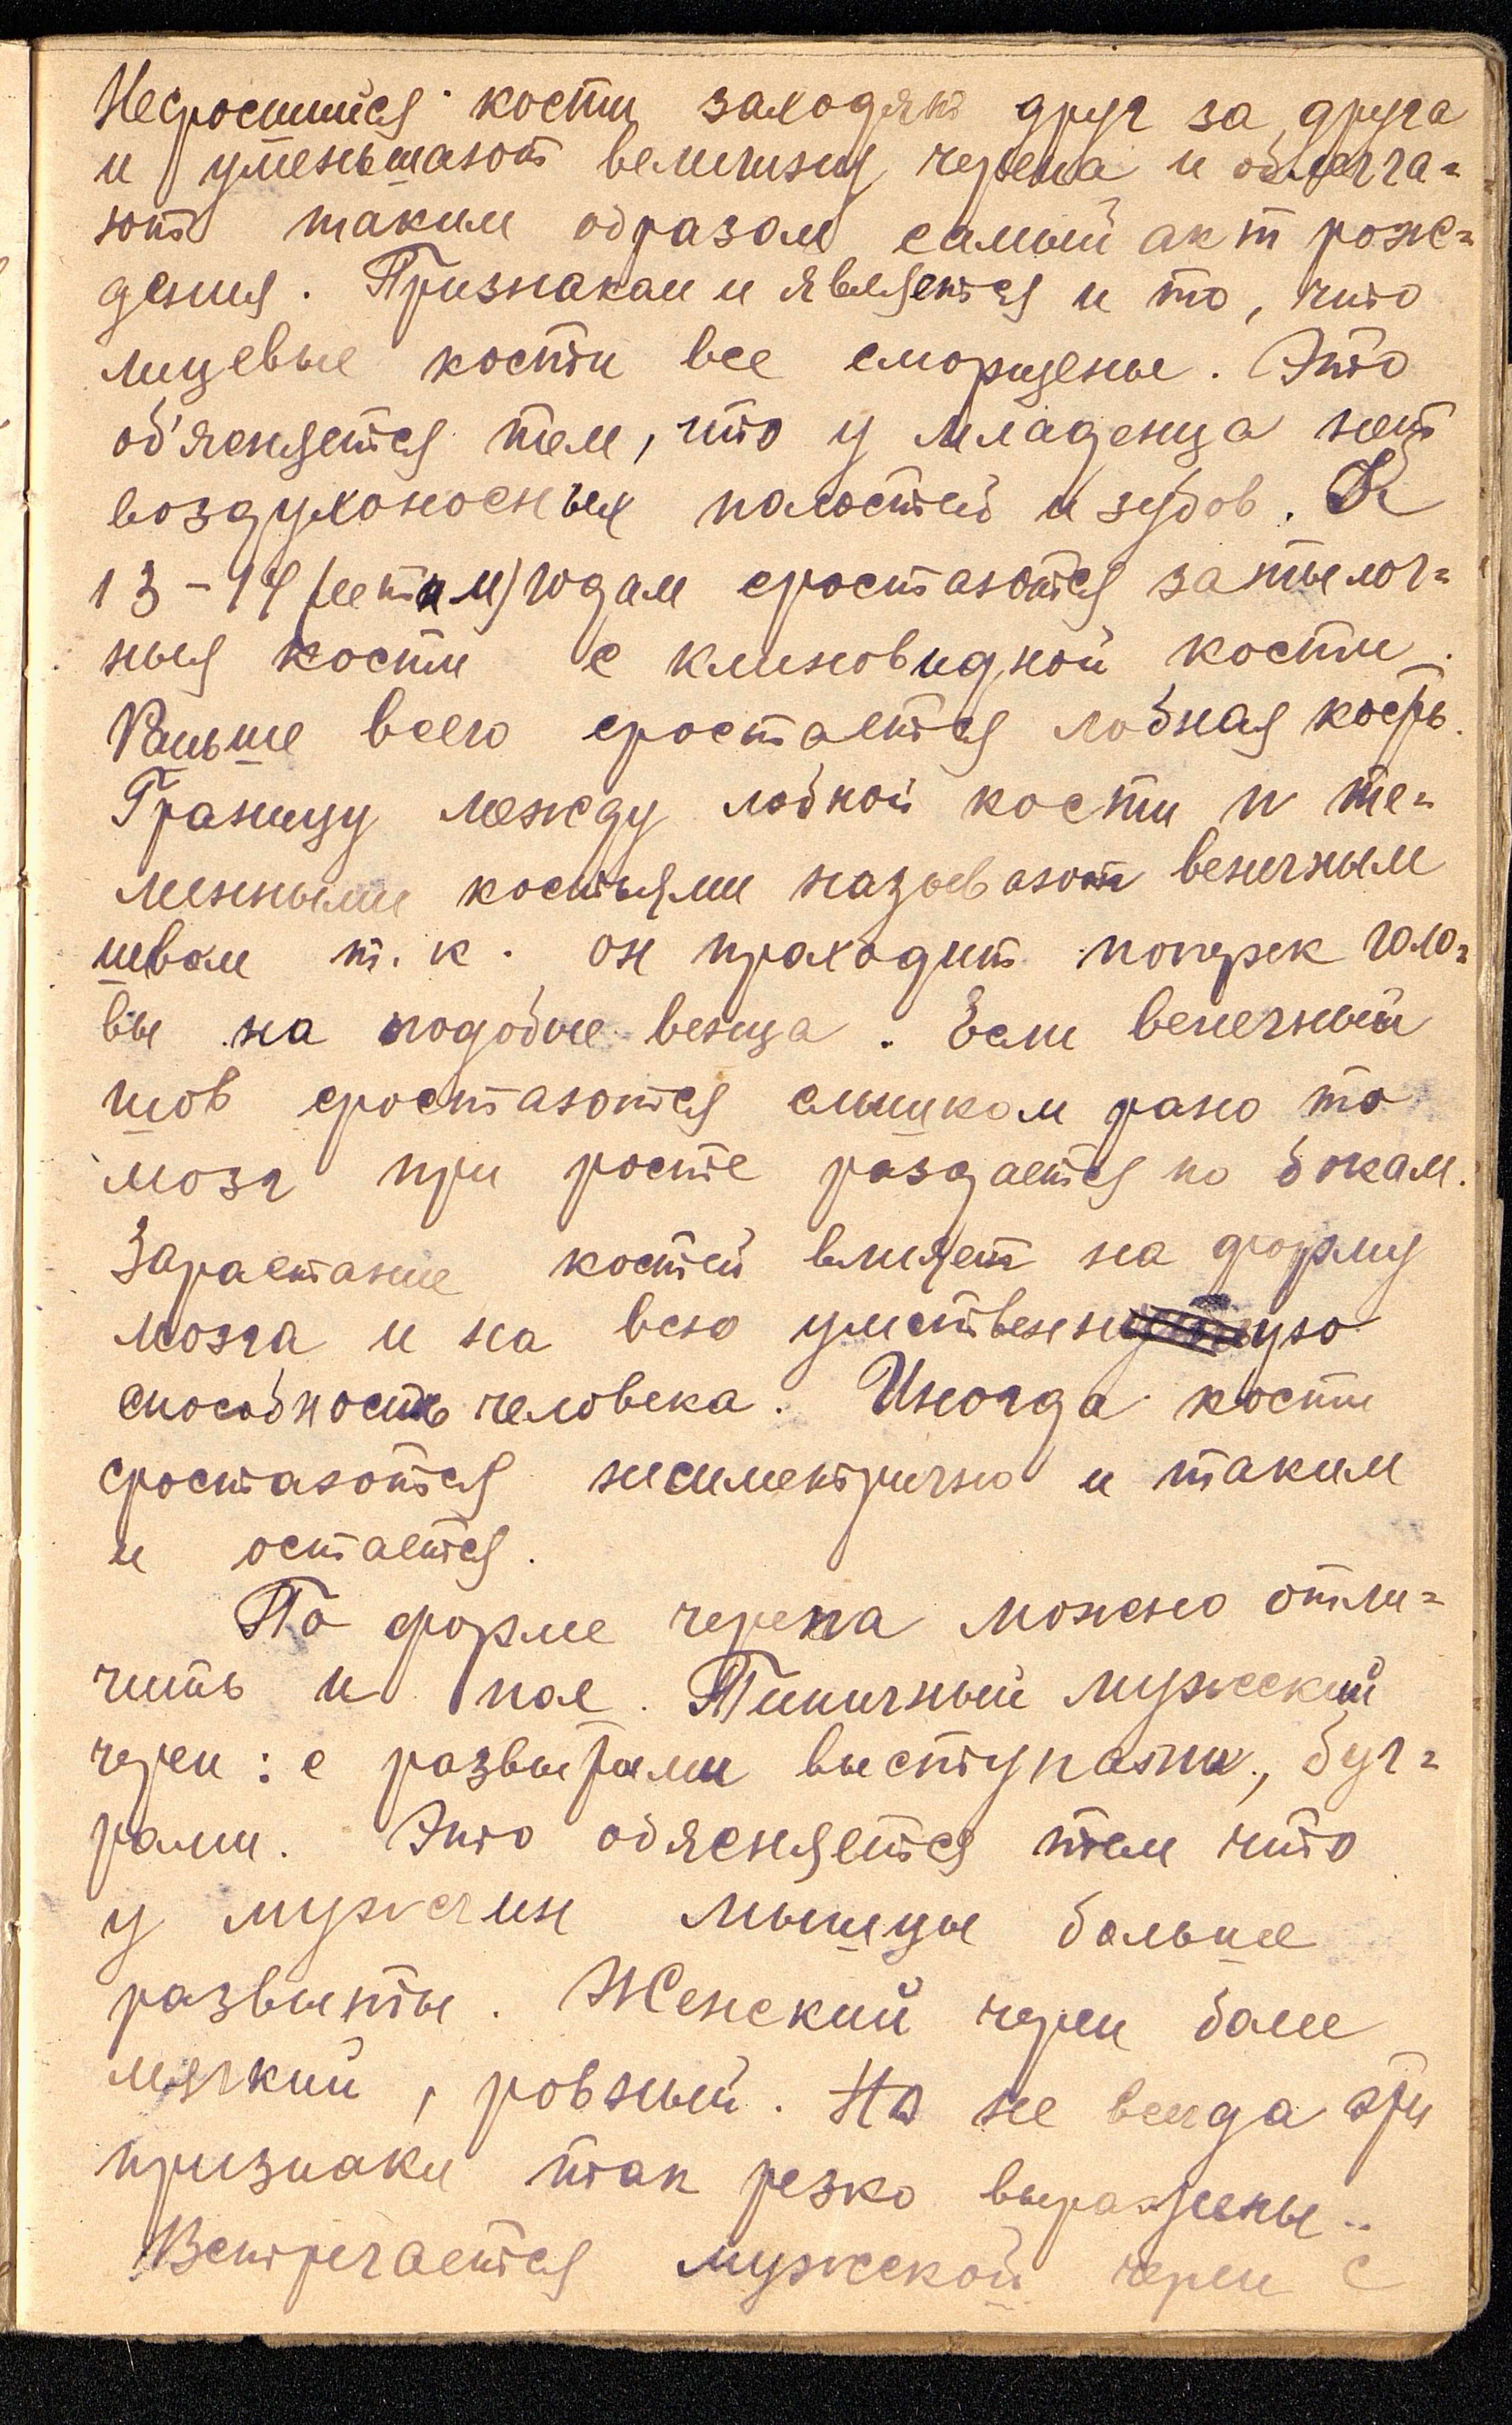 Несросшийся кости заходят друг за друга
и уменьшают величину черепа и облегча=
ют таким образом самый акт рож=
дения. Признаками является и то, что
лицевые кости все сморщены. Это
об'ясняется тем, что у младенца нет
воздухоносных полостей и зубов. К
13-14 (летам) годам сростаются затылоч=
ныя кости с клиновидной кости.
Раньше всего сростается лобная кость.
Границу между лобной кости и те=
менными костьями называют венечным
швом т.к. он проходит поперек голо=
вы на подобие венца. Если венечный
шов сростаются слишком рано то
мозг при росте раздается по бокам.
Зарастание костей влияет на форму
мозга и на всю умственную
способность человека. Иногда кости
сростаются несиметрично и таким
и остается.
По форме черепа можно отли=
чить и пол. Типичный мужеский
череп: с развитыми выступами, буг=
рами. Это обясняется тем что
у мужчин мышцы больше
развиты. Женский череп боле
мягкий, ровный. Но не всегда эти
признаки так резко выражены..
Встречается мужской череп с